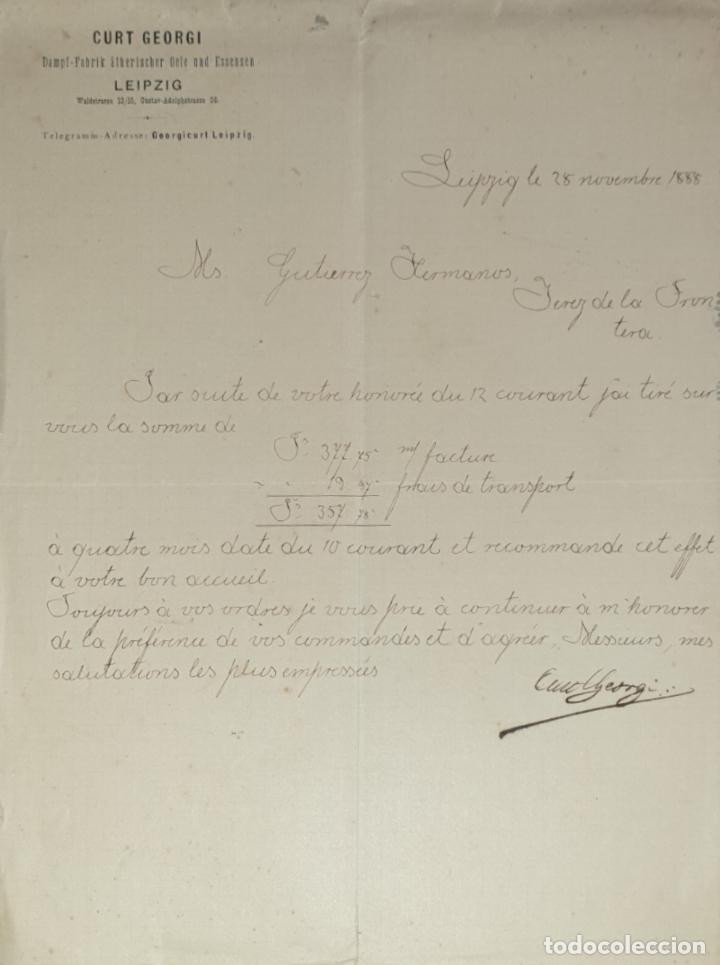 CURT GEORGI
Dampf-Fabrik ätherischer Oele und Essenzen
LEIPZIG
Telegramm-Adresse: Georgicurt Leipzig.
Leipzig le 28 novembre 1888
Ms. Gutierrez Hermanos,
Jerez de la Fron
tera.
Par suite de votre honorée du 12 courant j'ai tiré sur
vous la somme de
Fs 377 75 m/ facture
" " 19 97 frais de transport
Fs 357 78
à quatre mois date du 10 courant et recommande cet effet
à votre bon accueil.
Toujours à vos ordres je vous prie à continuer à m'honorer
de la préférence de vos commandes et d'agréer, Messieurs, mes
salutations les plus empressées
Curt Georgi
todocoleccion